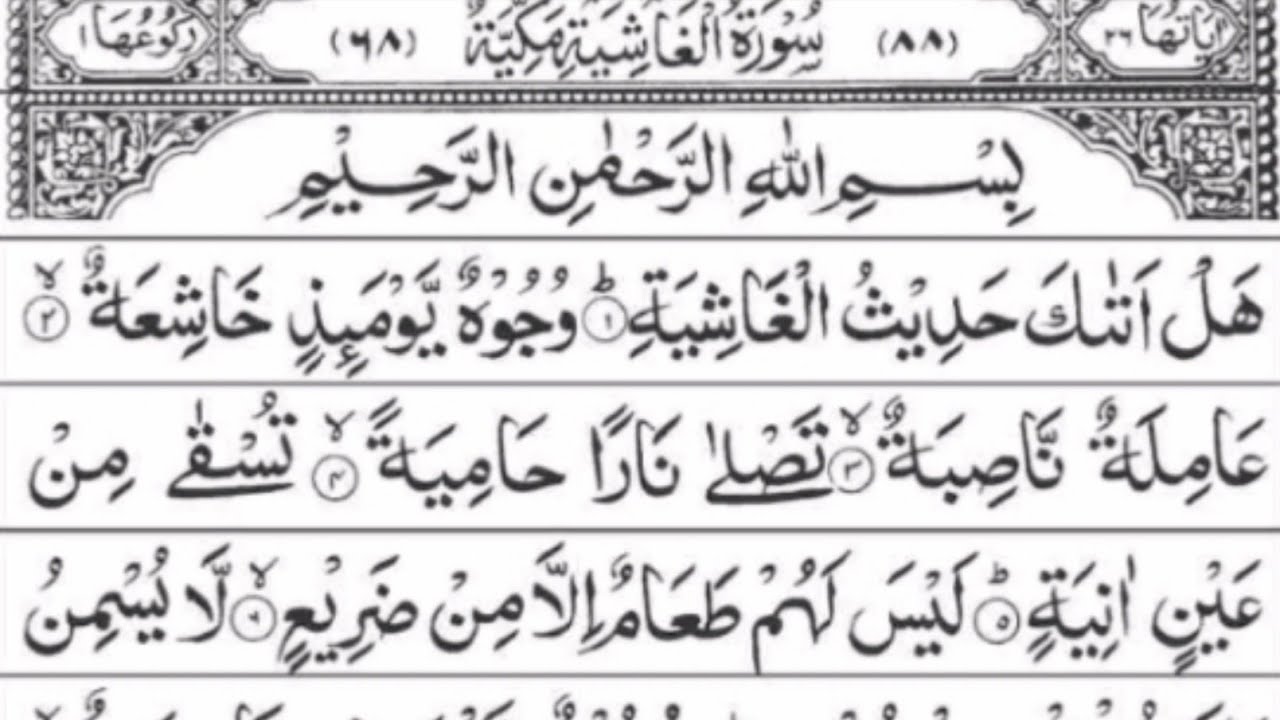 اٰيَاتُهَا ٢٦ (٨٨) سُوْرَةُ الْغَاشِيَةِ مَكِّيَّةٌ (٦٨) رُكُوْعُهَا ١
بِسْمِ اللّٰهِ الرَّحْمٰنِ الرَّحِيْمِ
هَلْ اَتٰىكَ حَدِيْثُ الْغَاشِيَةِؕ‏﴿۱﴾ وُجُوْهٌ يَّوْمَئِذٍ خَاشِعَةٌۙ‏﴿۲﴾
عَامِلَةٌ نَّاصِبَةٌۙ‏﴿۳﴾ تَصْلٰى نَارًا حَامِيَةًۙ‏﴿۴﴾ تُسْقٰى مِنْ
عَيْنٍ اٰنِيَةٍؕ‏﴿۵﴾ لَيْسَ لَهُمْ طَعَامٌ اِلَّا مِنْ ضَرِيْعٍۙ‏﴿۶﴾ لَّا يُسْمِنُ